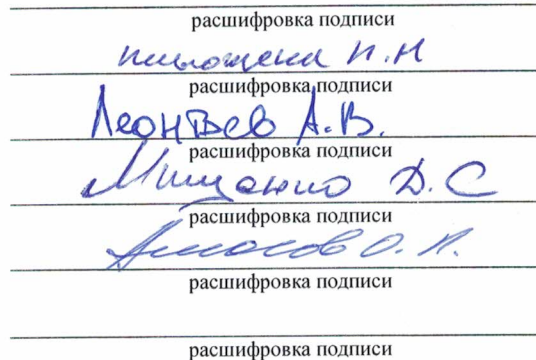 расшифровка подписи
И.Н
расшифровка подписи
Леонтьев А.В.
расшифровка подписи
Мищенко Д.С
расшифровка подписи
Амосов О.Л.
расшифровка подписи
расшифровка подписи